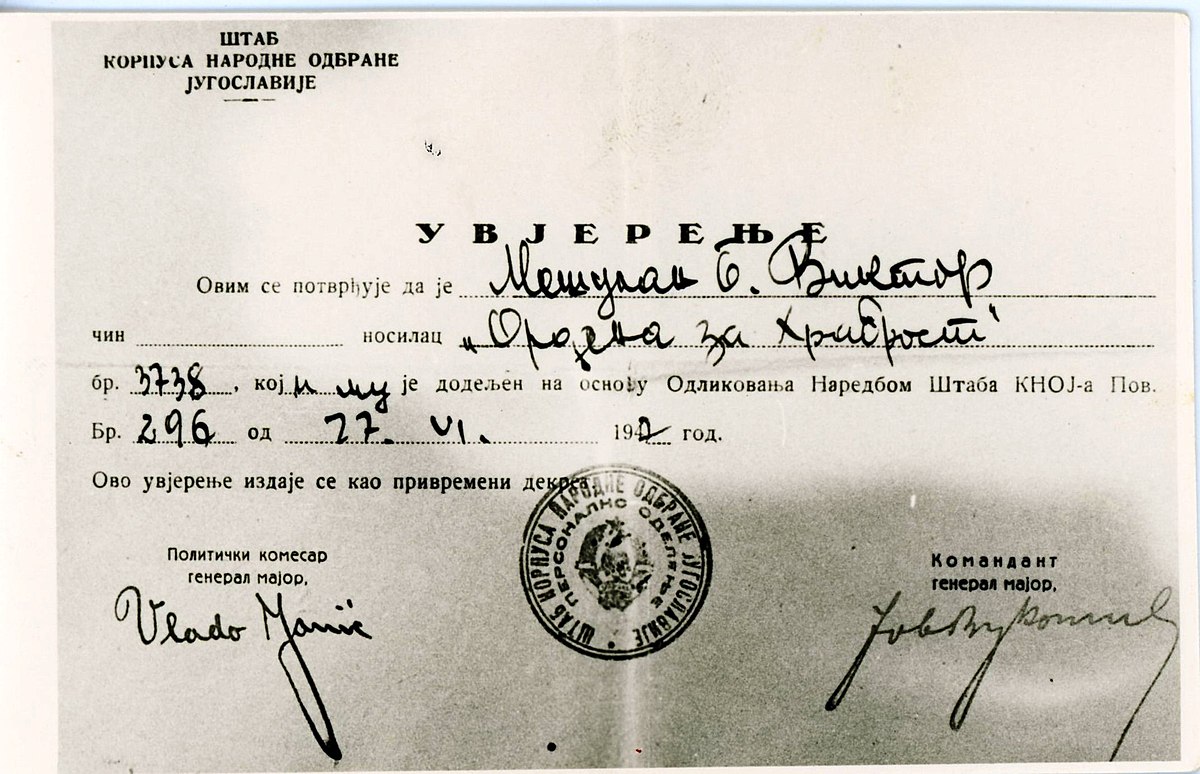 ШТАБ
КОРПУСА НАРОДНЕ ОДБРАНЕ
ЈУГОСЛАВИЈЕ
УВЈЕРЕЊЕ
Овим се потврђује да је Мешулам Б. Виктор
чин носилац „Ордена за храброст"
бр. 3738, који му је додељен на основу Одликовања Наредбом Штаба КНОЈ-а Пов.
Бр. 296 од 27. VI. 194 год.
Ово увјерење издаје се као привремени декрет
ШТАБ КОРПУСА НАРОДНЕ ОДБРАНЕ ЈУГОСЛАВИЈЕ
ПЕРСОНАЛНО ОДЕЛЕЊЕ
Политички комесар
генерал мајор,
Vlado Janić
Командант
генерал мајор,